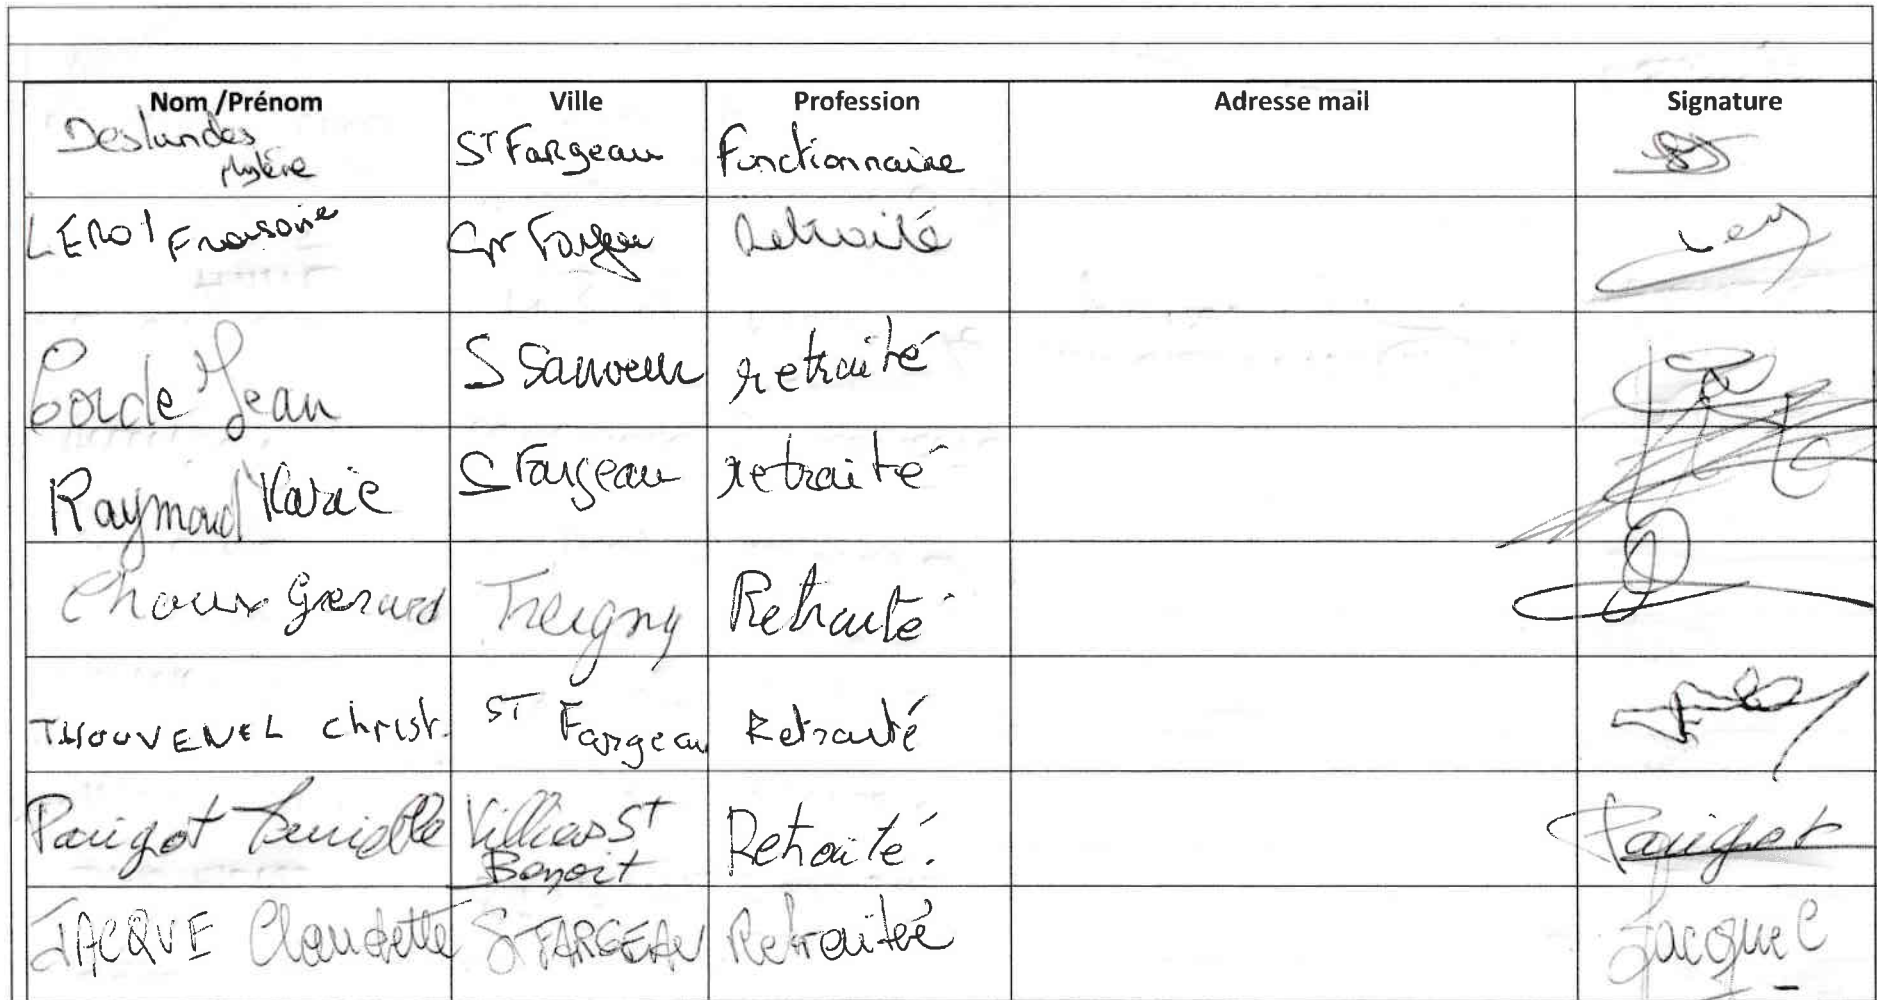 Nom /Prénom Ville Profession Adresse mail Signature
Deslandes ST Fargeau Fonctionnaire
LEROI Françoise St Fargeau Retraité
Corde Jean S Sauveur retraité
Raymond Marie S Fargeau retraité
Choux Gerard Treigny Retraité
THOUVENEL Christ. ST Fargeau Retraité
Parigot Villiers St Retraité. Parigot
Benoit
JACQUE Claudette ST FARGEAU Retraitée Jacque C